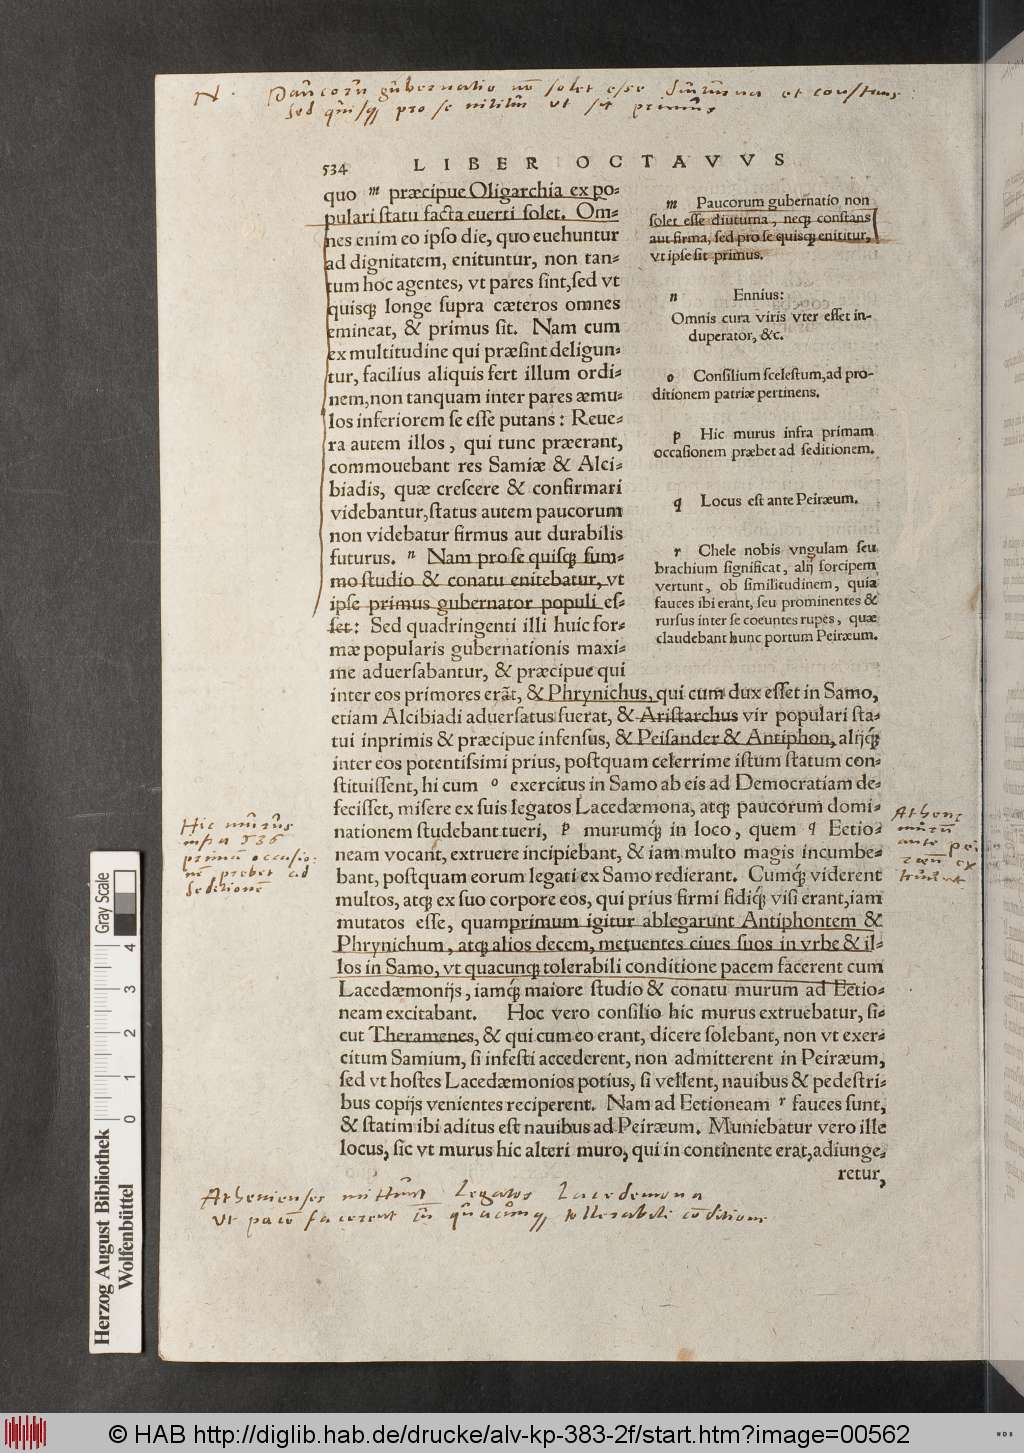 N. Paucorū gūbernatio nō solet esse diūtūrna et constans
sed qūisq3 pro se nititūr ut sit primūs
534 LIBER OCTAVVS
quo m præcipue Oligarchia ex po=
pulari statu facta euerti solet. Om=
nes enim eo ipso die, quo euehuntur
ad dignitatem, enituntur, non tan=
tum hoc agentes, vt pares sint, sed vt
quisq; longe supra cæteros omnes
emineat, & primus sit. Nam cum
ex multitudine qui præsint deligun=
tur, facilius aliquis fert illum ordi=
nem, non tanquam inter pares æmu=
los inferiorem se esse putans: Reue=
ra autem illos, qui tunc præerant,
commouebant res Samiæ & Alci=
biadis, quæ crescere & confirmari
videbantur, status autem paucorum
non videbatur firmus aut durabilis
futurus. n Nam pro se quisq; sum=
mo studio & conatu enitebatur, vt
ipse primus gubernator populi es=
set: Sed quadringenti illi huic for=
mæ popularis gubernationis maxi=
me aduersabantur, & præcipue qui
m Paucorum gubernatio non
solet esse diuturna, neq; constans
aut firma, sed pro se quisq; enititur,
vt ipse sit primus.
n Ennius:
Omnis cura viris vter esset in-
duperator, &c.
o Consilium scelestum, ad pro-
ditionem patriæ pertinens.
p Hic murus infra primam
occasionem præbet ad seditionem.
q Locus est ante Peiræum.
r Chele nobis vngulam seu
brachium significat, alij forcipem
vertunt, ob similitudinem, quia
fauces ibi erant, seu prominentes &
rursus inter se coeuntes rupes, quæ
claudebant hunc portum Peiræum.
inter eos primores erāt, & Phrynichus, qui cum dux esset in Samo,
etiam Alcibiadi aduersatus fuerat, & Aristarchus vir populari sta=
tui inprimis & præcipue infensus, & Peisander & Antiphon, alijq́;
inter eos potentissimi prius, postquam celerrime istum statum con=
stituissent, hi cum o exercitus in Samo ab eis ad Democratiam de=
fecisset, misere ex suis legatos Lacedæmona, atq; paucorum domi=
nationem studebant tueri, p murumq́; in loco, quem q Eetio=
neam vocant, extruere incipiebant, & iam multo magis incumbe=
bant, postquam eorum legati ex Samo redierant. Cumq́; viderent
multos, atq; ex suo corpore eos, qui prius firmi fidiq́; visi erant, iam
mutatos esse, quamprimum igitur ablegarunt Antiphontem &
Phrynichum, atq; alios decem, metuentes ciues suos in vrbe & il=
los in Samo, vt quacunq; tolerabili conditione pacem facerent cum
Lacedæmonijs, iamq́; maiore studio & conatu murum ad Eetio=
neam excitabant. Hoc vero consilio hic murus extruebatur, si=
cut Theramenes, & qui cum eo erant, dicere solebant, non vt exer=
citum Samium, si infesti accederent, non admitterent in Peiræum,
sed vt hostes Lacedæmonios potius, si vellent, nauibus & pedestri=
bus copijs venientes reciperent. Nam ad Eetioneam r fauces sunt,
& statim ibi aditus est nauibus ad Peiræum. Muniebatur vero ille
locus, sic vt murus hic alteri muro, qui in continente erat, adiunge=
retur,
Hic mūrus
infra 536
primā occasio=
nē prebet ad
seditionē
Atheni
mūrū
ante pei
ræū ex
trūūt
Athenienses mittūnt Legatos Lacedemona
ut pacē facerent cū qūacūmq3 tollerabili cōditione
Gray Scale
4
3
2
1
0
Herzog August Bibliothek
Wolfenbüttel
© HAB http://diglib.hab.de/drucke/alv-kp-383-2f/start.htm?image=00562